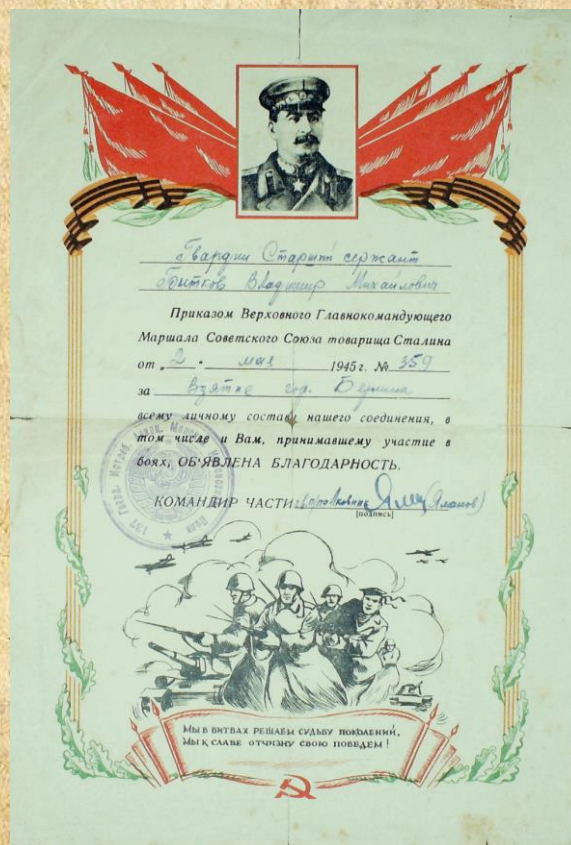 Гвардии Старший сержант
Бутков Владимир Михайлович
Приказом Верховного Главнокомандующего
Маршала Советского Союза товарища Сталина
от „2" мая 1945 г. № 359
за Взятие гор. Берлина
всему личному составу нашего соединения, в
том числе и Вам, принимавшему участие в
боях, ОБ'ЯВЛЕНА БЛАГОДАРНОСТЬ.
КОМАНДИР ЧАСТИ:
[подпись]
137 Гвард. Истреб. Краснозн.
МЫ В БИТВАХ РЕШАЕМ СУДЬБУ ПОКОЛЕНИЙ,
МЫ К СЛАВЕ ОТЧИЗНУ СВОЮ ПОВЕДЕМ!